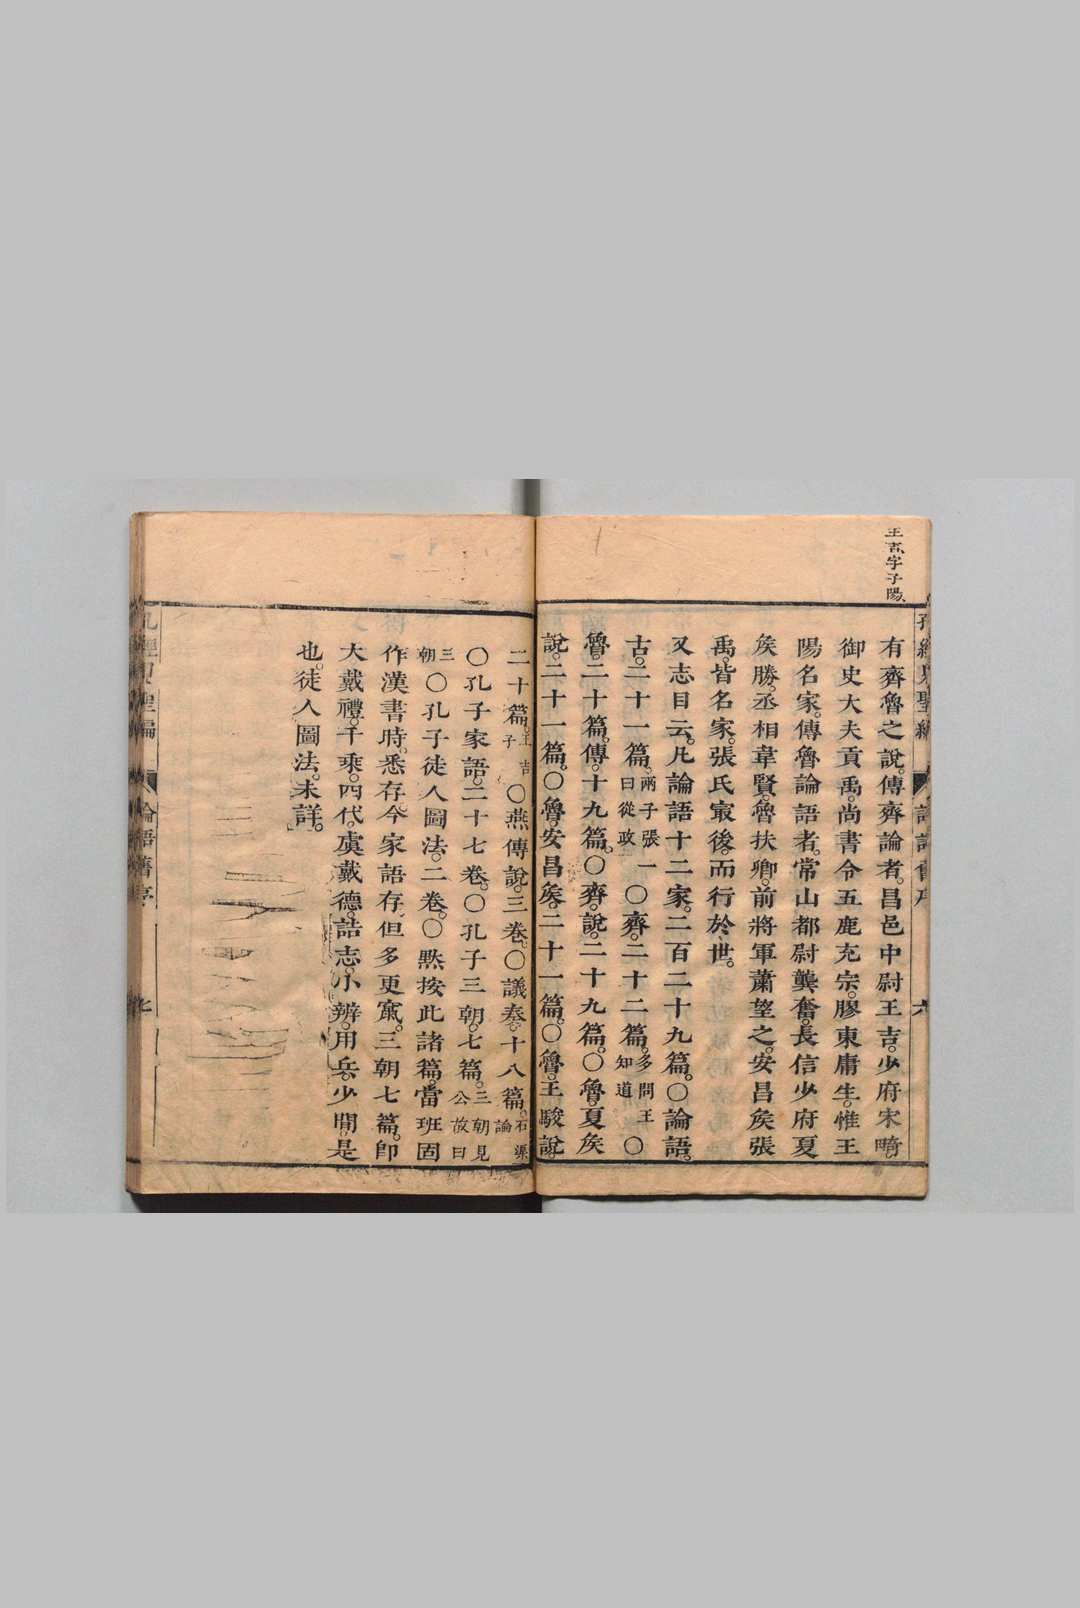 王吉字子陽
有齊魯之說。傳齊論者。昌邑中尉王吉。少府宋畸。
御史大夫貢禹。尚書令五鹿充宗。膠東庸生。惟王
陽名家。傳魯論語者。常山都尉龔奮。長信少府夏
矦勝。丞相韋賢。魯扶卿。前將軍蕭望之。安昌矦張
禹。皆名家。張氏㝡後。而行於世。
又志目云。凡論語十二家。二百二十九篇。〇論語。
古。二十一篇。兩子張 曰從政一〇齊。二十二篇。多問王 知道〇
魯。二十篇。傳。十九篇。〇齊。說。二十九篇。〇魯。夏矦
說。二十一篇。〇魯。安昌矦。二十一篇。〇魯。王駿說。
二十篇。王吉 子〇燕傳說。三卷。〇議奏。十八篇。石渠 論
〇孔子家語。二十七卷。〇孔子三朝。七篇。三朝見 公故曰
三 朝〇孔子徒人圖法。二卷。〇㸃按此諸篇。當班固
作漢書時。悉存。今家語存。但多更竄。三朝七篇。卽
大戴禮。千乘。四代。虞戴德。誥志。小辨。用兵。少閒。是
也。徒人圖法。未詳。
論語舊序
七
六